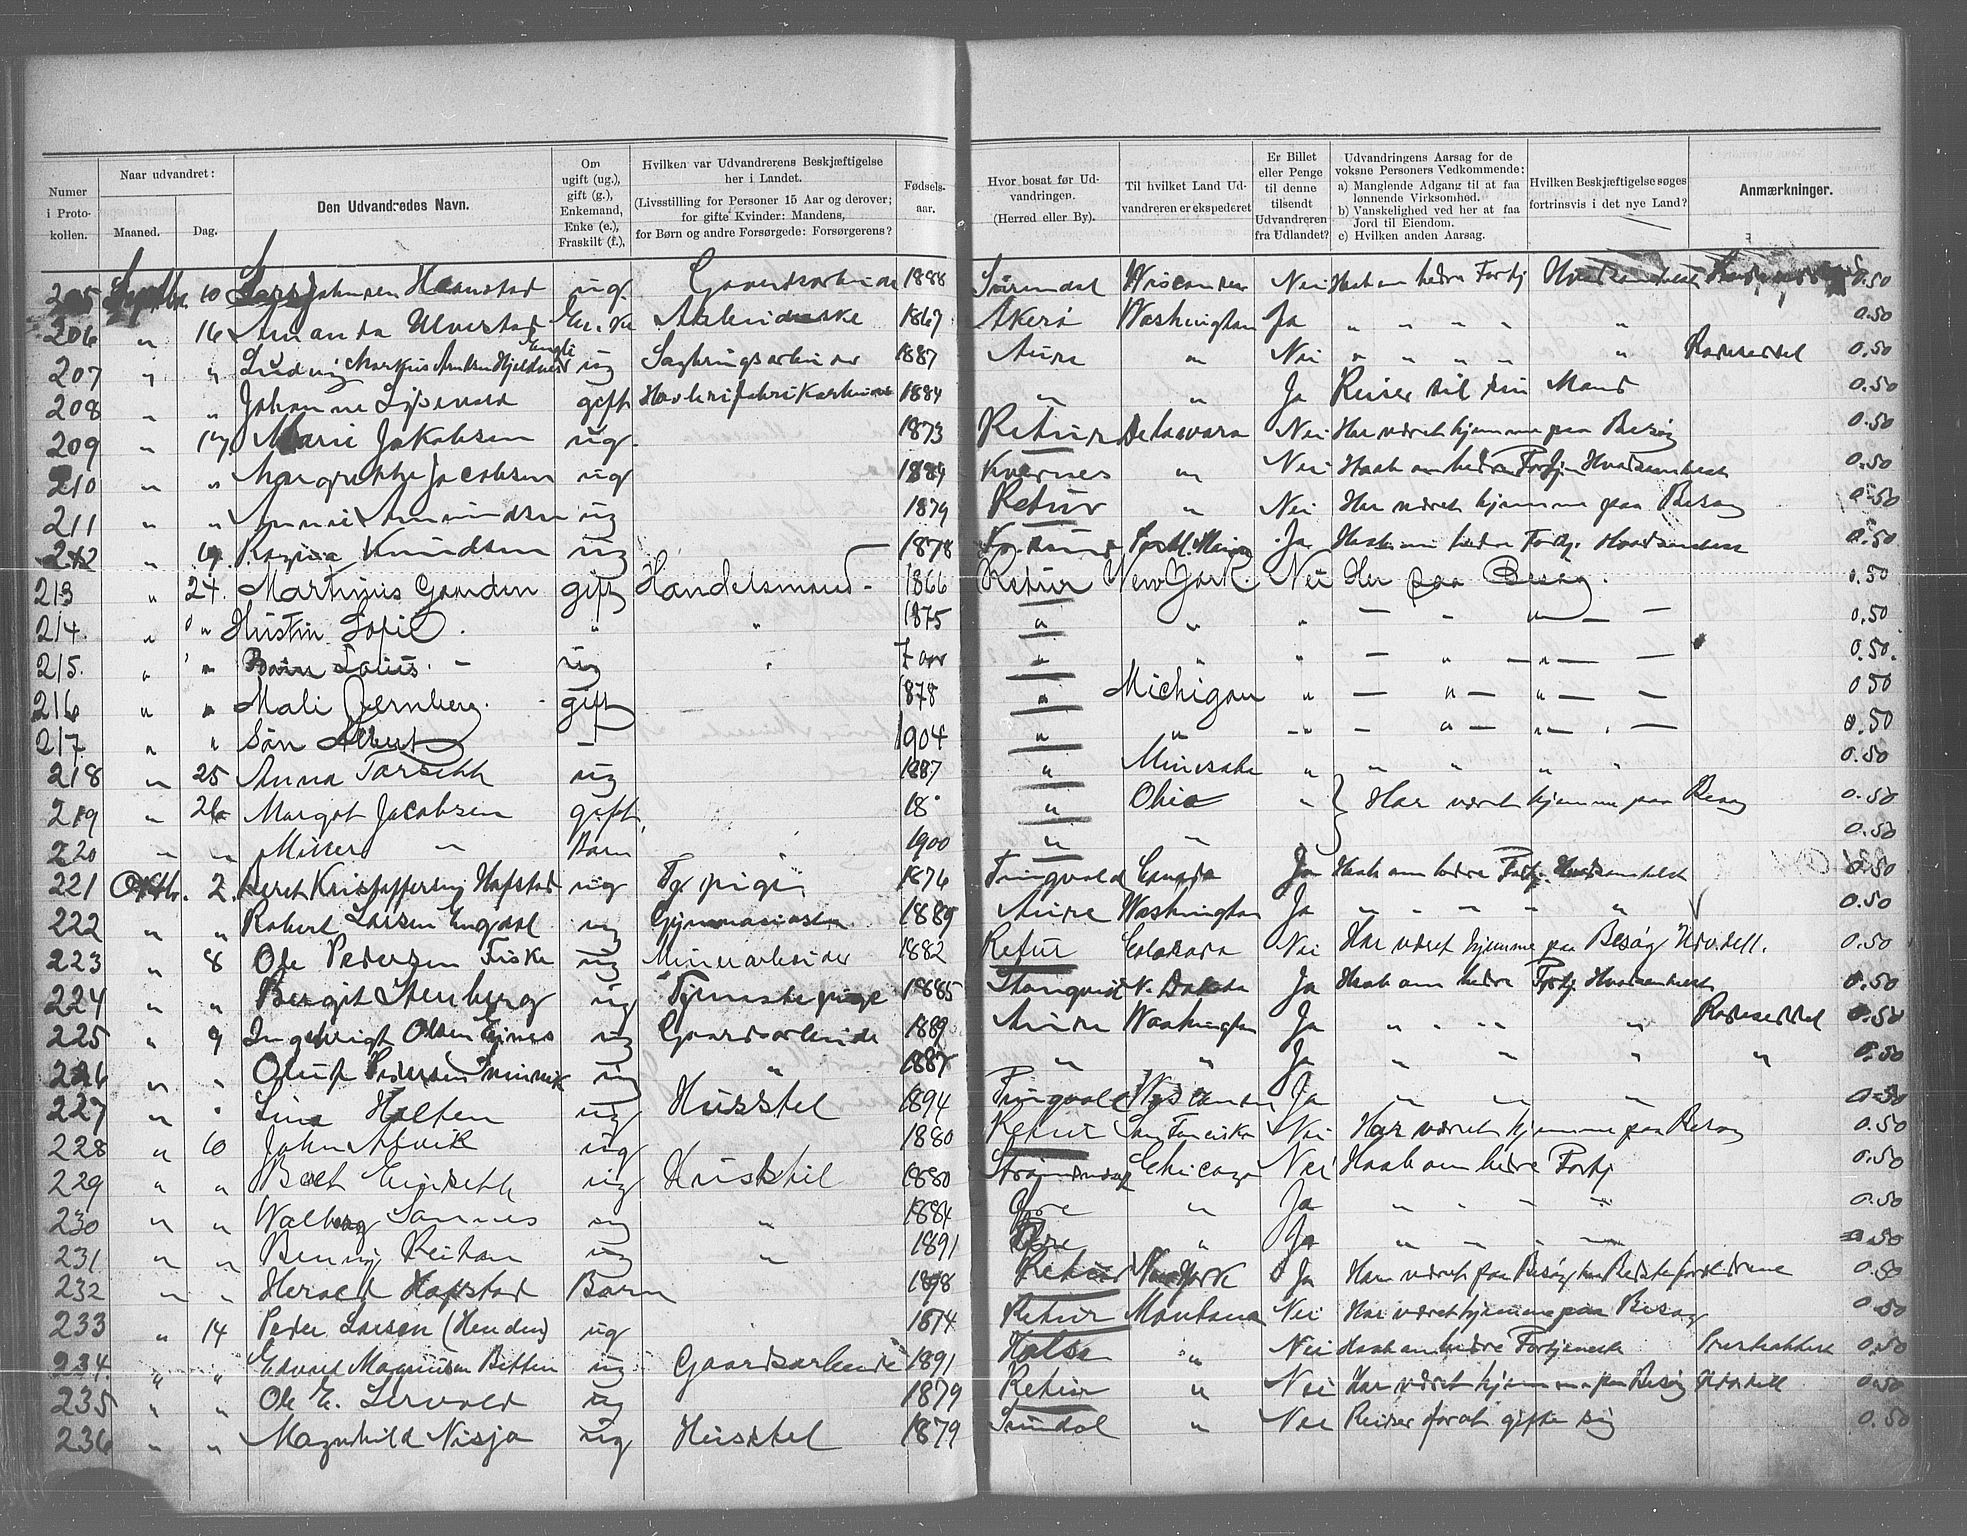 Numer i Proto-kollen.
Naar udvandret:
Maaned.
Dag.
Den Udvandredes Navn.
Om ugift (ug.), gift (g.), Enkemand, Enke (e.), Fraskilt (f.),
Hvilken var Udvandrerens Beskjæftigelse her i Landet.
(Livsstilling for Personer 15 Aar og derover; for gifte Kvinder: Mandens, for Børn og andre Forsørgede: Forsørgerens?
Fødsels-aar.
Hvor bosat før Ud-vandringen.
(Herred eller By).
Til hvilket Land Ud-vandreren er ekspederet
Er Billet eller Penge til denne tilsendt Udvandreren fra Udlandet?
Udvandringens Aarsag for de voksne Personers Vedkommende:
a) Manglende Adgang til at faa lønnende Virksomhed.
b) Vanskelighed ved her at faa Jord til Eiendom.
c) Hvilken anden Aarsag.
Hvilken Beskjæftigelse søges fortrinsvis i det nye Land?
Anmærkninger.
205 Septbr. 10 Hanstad ug. Gaardsarbeider 1888 Surendal Wisconsin Nei Haab om bedre Fortj 0.50
206 " 16 Amanda Ulvestad Enke 1867 Akerø Washington Ja " " " " " 0.50
207 " " Ludvig Markus ug Sagbrugsarbeider 1887 Aure " Nei " " " " " Rodeseddel 0.50
208 " " Johanne gift 1884 " " Ja Reiser til sin Mand 0.50
209 " 17 Marie Jakobsen ug 1873 Retur Delavara Nei Har været hjemme paa Besøg 0.50
210 " " Margrethe Jacobsen ug 1884 Kvernes " Nei Haab om bedre Fortj. Hvadsomhelst 0.50
211 " " Anne Amundsen ug 1879 Retur " Nei Har været hjemme paa Besøg 0.50
212 " 19 Knudsen ug 1878 Ja Haab om bedre Fortj. Hvadsomhelst 0.50
213 " 24. Martinius gift Handelsmand - 1866 Retur New York. Nei Her paa Besøg. 0.50
214. " " Hustru Sofie. " " 1875 " " " — " — 0.50
215. " " Barn Louis. - ug " 7 aar " " " — " — " — 0.50.
216 " " Mali Jernberg. gift — 1878 " Michigan " — " — " — — 0.50
217. " " Søn Albert — 1904 " " " — " — " — — 0.50
218 " 25 Anna Torseth ug 1887 " Minesota " " " " 0.50
219 " 26 Margot Jacobsen gift 18 " Ohio " Har været hjemme paa Besøg 0.50
220 " " " Barn 1900 " " 0.50
221 Oktbr. 2. Beret Kristoffersen Hafstad ug Tj pige 1876 Tingvold Canada Ja Haab om bedre Fortj. Hvadsomhelst 0.50
222 " " Robert Larsen Engdal ug Gymnasiasten 1889 Aure Washington Ja " " " " " 0.50
223 " 8 Ole Pedersen Fiske ug Minearbeider 1882 Retur Colorado Nei Har været hjemme paa Besøg 0.50
224 " " Bergit Stenberg ug Tjenestepige 1885 Stangvik N. Dakota Ja Haab om bedre Fortj. Hvadsomhelst 0.50
225 " 9 Ingebrigt Olsen ug Gaardsarbeider 1889 Aure Washington Ja " " " " " Rodeseddel 0.50
226 " " Oluf Pedersen ug " 1887 " " Ja " " " " 0.50
227 " " Lina Holten ug Husstel 1894 Tingvold Wisconsin Ja " " " 0.50
228 " 10 John Alvik ug 1880 Retur San Fanciska Nei Har været hjemme paa Besøg 0.50
229 " " Beret Endseth ug Husstel 1880 Chicago Nei Haab om bedre Fortj 0.50
230 " " Walborg Sannes ug " 1884 Øre " Ja " " " " 0.50
231 " " Benny Reitan ug " 1891 Øre " Ja " " " " 0.50
232 " " Herold Hafstad Barn 1898 Retur New York Ja Har været paa Besøg hos Bedsteforældrene 0.50
233 " 14 Peder Larsen (Henden) ug 1874 Retur Montana Nei Har været hjemme paa Besøg 0.50
234. " " Edvard Magnusen Bitten ug Gaardsarbeider 1891 Halsa " Nei Haab om bedre Fortjeneste 0.50
235 " " Ole E. Lervold ug 1879 Retur " Nei Har været hjemme paa Besøg 0.50
236 " " Magnhild Nisja ug Husstel 1879 Sundal " Nei Reiser for at gifte sig 0.50